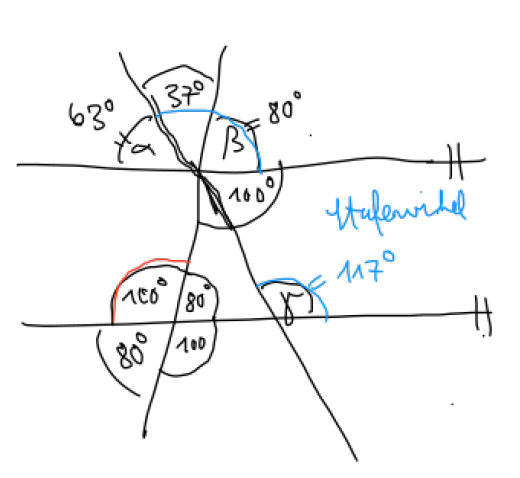 37°
63°
80°
α
β
100°
Stufenwinkel
117°
100°
80°
γ
80°
100